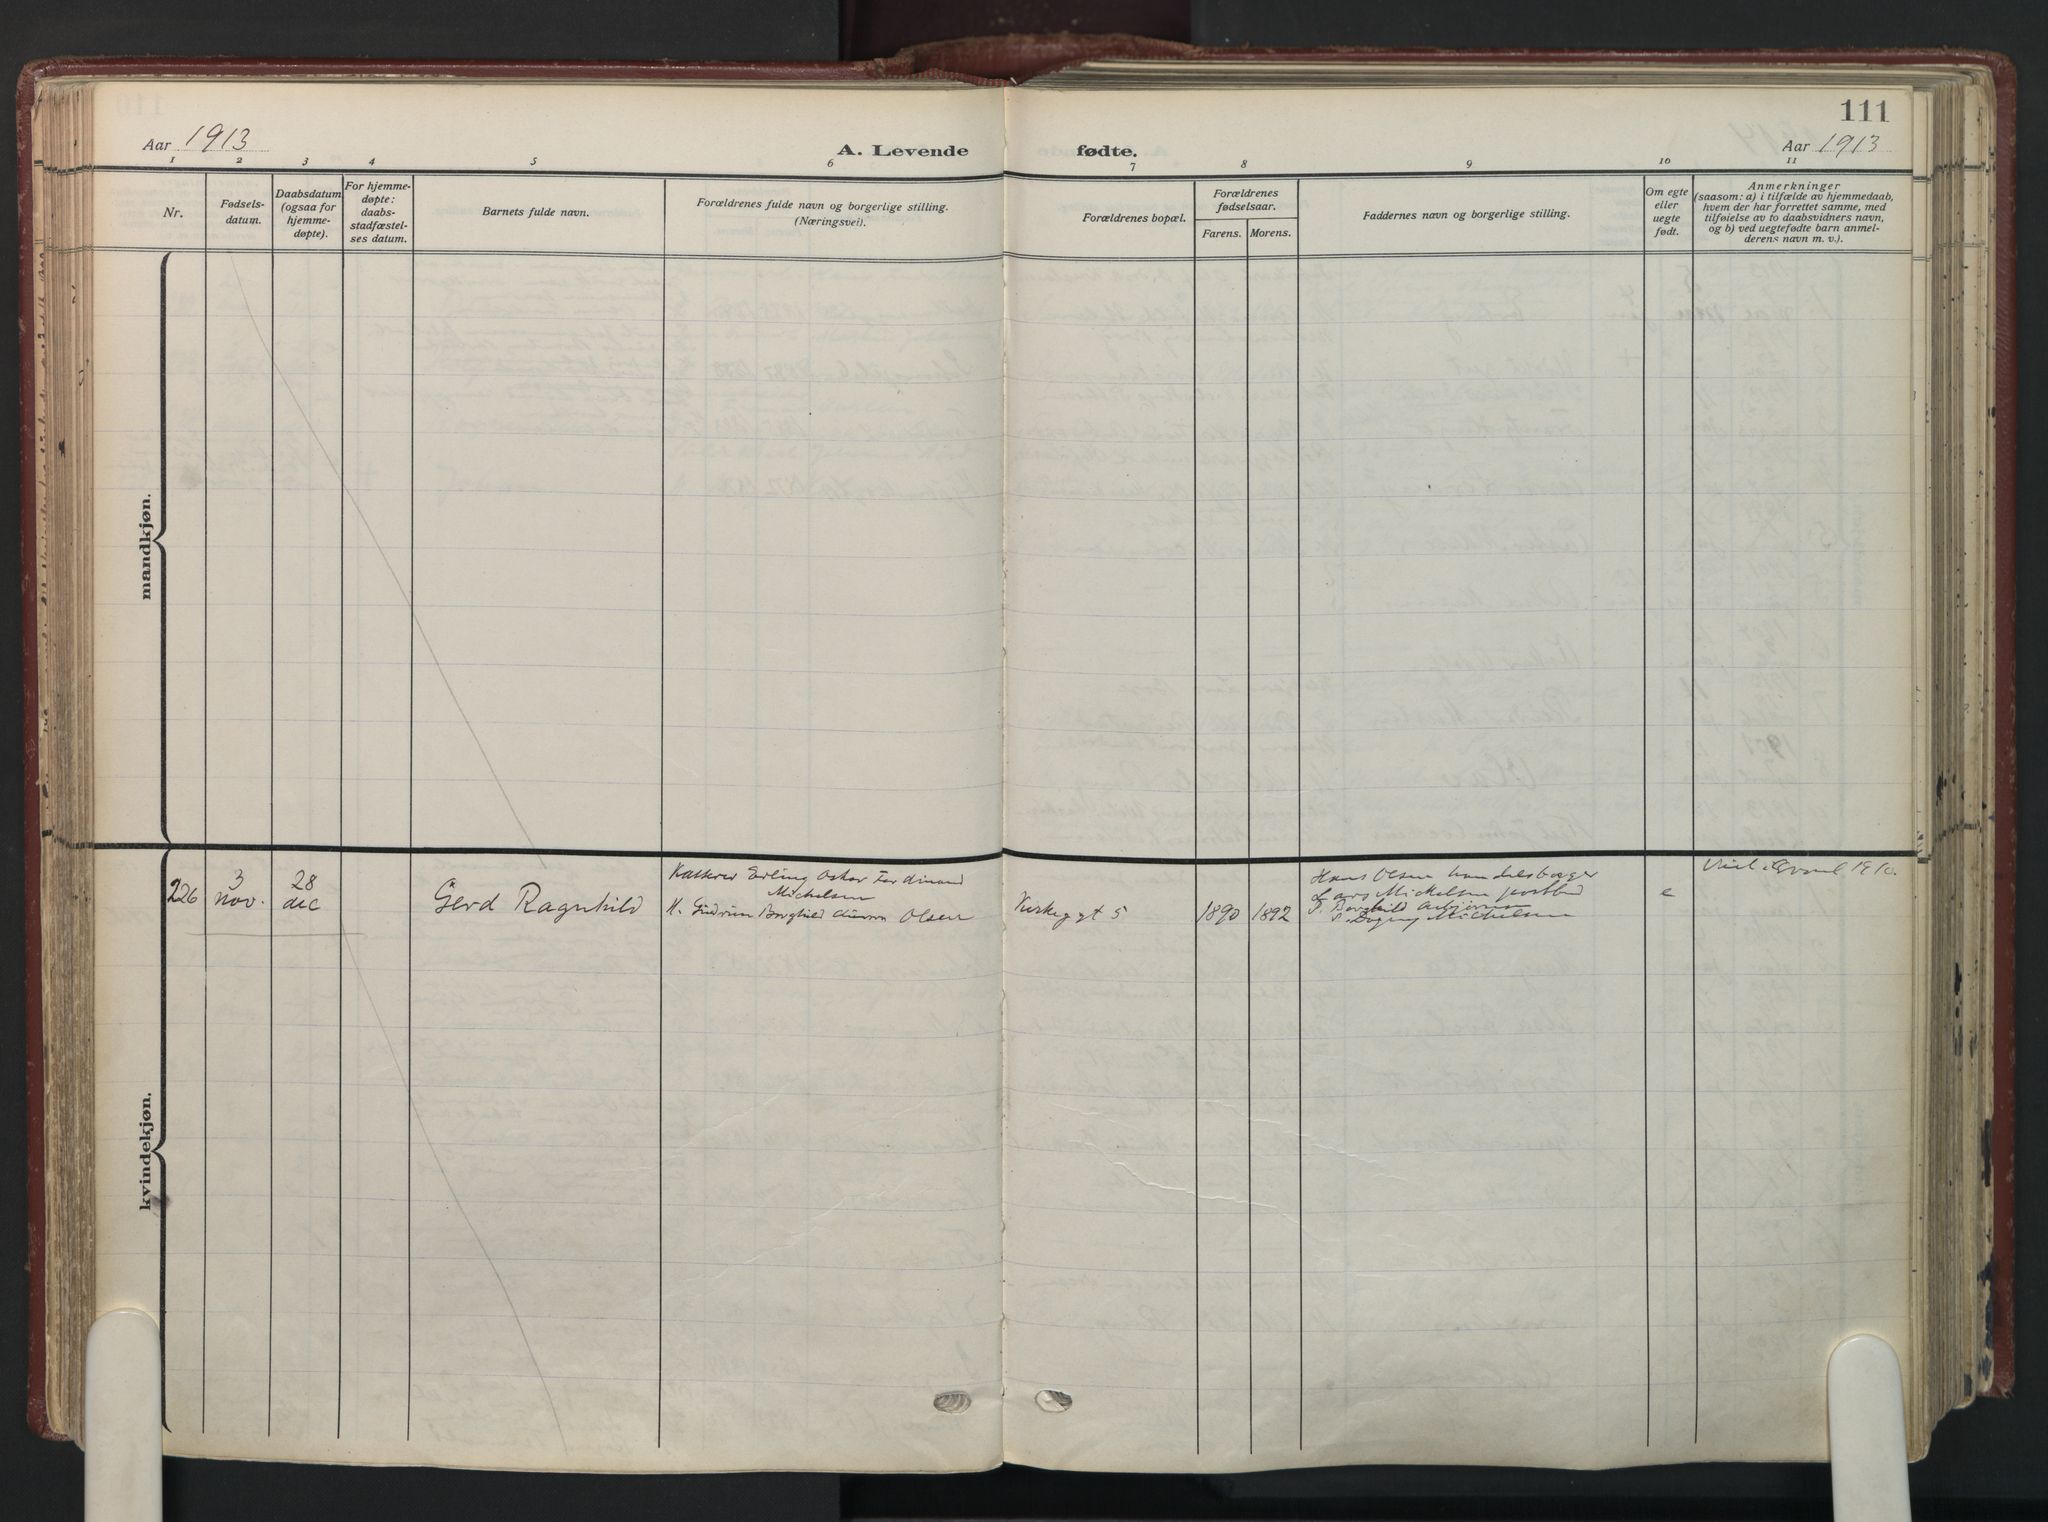 111
Aar 1913
A. Levende fødte.
Aar 1913
1 2 3 4 5 6 7 8 9 10 11
Nr.
Fødsels-
datum.
Daabsdatum
(ogsaa for
hjemme-
døpte).
For hjemme-
døpte:
daabs-
stadfæstel-
ses datum.
Barnets fulde navn.
Forældrenes fulde navn og borgerlige stilling.
(Næringsvei).
Forældrenes bopæl.
Forældrenes
fødselsaar.
Farens. Morens.
Faddernes navn og borgerlige stilling.
Om egte
eller
uegte
født.
Anmerkninger
(saasom: a) i tilfælde av hjemmedaab,
hvem der har forrettet samme, med
tilføielse av to daabsvidners navn,
og b) ved uegtefødte barn anmel-
derens navn m. v.).
mandkjøn.
kvindekjøn.
226
3
nov.
28
dec
Gerd Ragnhild
Erling Oskar Ferdinand
Michelsen
H. Gudrun Borghild Olsen
Kirkegt 5
1890
1892
Hans Olsen handelsborger
Lars Michelsen postbud
Borghild
Dagny Michelsen
e